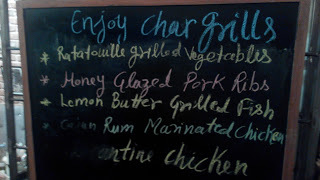 Enjoy Char grills
* Ratatouille grilled vegetables
* Honey Glazed Pork Ribs
* Lemon Butter Grilled Fish
* Cajun Rum Marinated Chicken
chicken